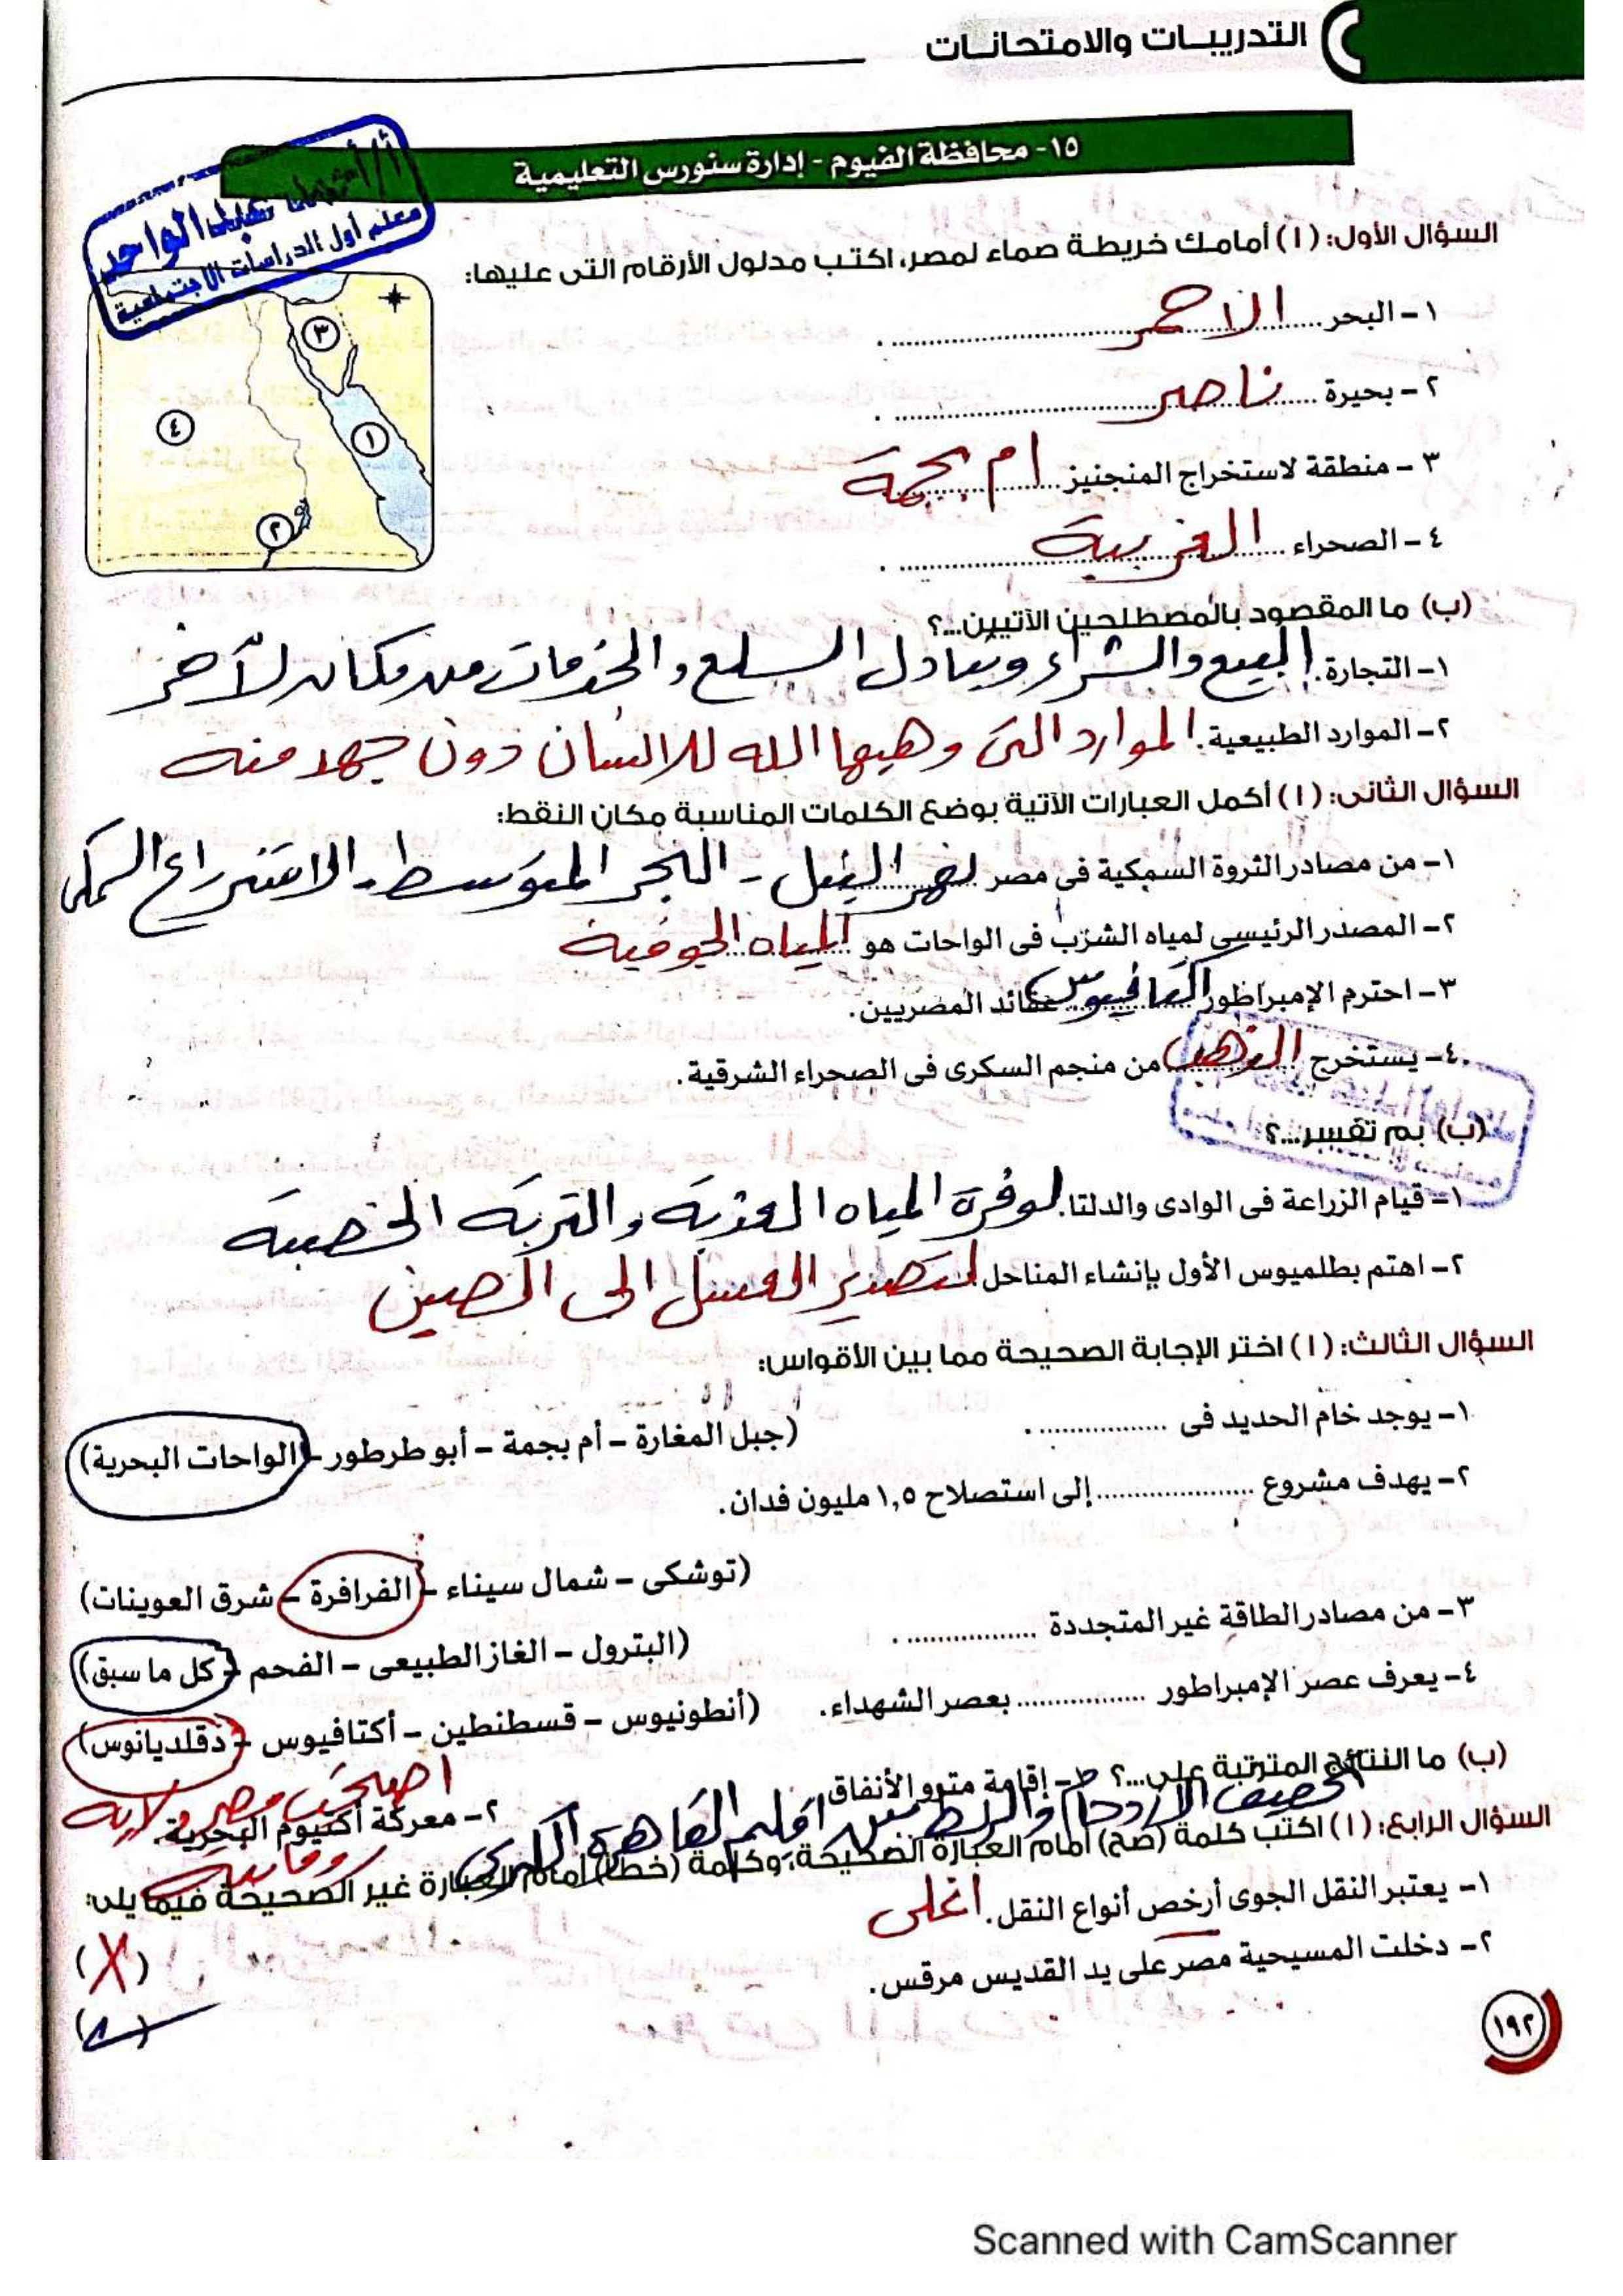 التدريبات والامتحانات
١٥- محافظة الفيوم - إدارة سنورس التعليمية
معلم أول الدراسات الاجتماعية
السؤال الأول: (١) أمامك خريطة صماء لمصر، اكتب مدلول الأرقام التى عليها:
١- البحر الاحمر
٢- بحيرة ناصر
٣- منطقة لاستخراج المنجنيز ام بجمة
٤- الصحراء الغربية
٣
٤
١
٢
(ب) ما المقصود بالمصطلحين الآتيين...؟
١- التجارة. البيع والشراء وتبادل السلع والخدمات من مكان لآخر
٢- الموارد الطبيعية. الموارد التى وهبها الله للانسان دون جهد منه
السؤال الثانى: (١) أكمل العبارات الآتية بوضع الكلمات المناسبة مكان النقط:
١- من مصادر الثروة السمكية فى مصر نهر النيل - البحر المتوسط - الاستزراع السمكى
٢- المصدر الرئيسى لمياه الشرب فى الواحات هو المياه الجوفية
٣- احترم الإمبراطور أكتافيوس عقائد المصريين.
٤- يستخرج الذهب من منجم السكرى فى الصحراء الشرقية.
(ب) بم تفسر...؟
١- قيام الزراعة فى الوادى والدلتا. لوفرة المياه العذبة والتربة الخصبة
٢- اهتم بطلميوس الأول بإنشاء المناحل. لتصدير العسل الى الصين
السؤال الثالث: (١) اختر الإجابة الصحيحة مما بين الأقواس:
١- يوجد خام الحديد فى ................. . (جبل المغارة - أم بجمة - أبو طرطور - الواحات البحرية)
٢- يهدف مشروع ..................... إلى استصلاح ١,٥ مليون فدان.
(توشكى - شمال سيناء - الفرافرة - شرق العوينات)
٣- من مصادر الطاقة غير المتجددة ................. .
(البترول - الغاز الطبيعى - الفحم - كل ما سبق)
٤- يعرف عصر الإمبراطور ................. بعصر الشهداء. (أنطونيوس - قسطنطين - أكتافيوس - دقلديانوس)
(ب) ما النتائج المترتبة على...؟ ١- إقامة مترو الأنفاق
تخفيف الازدحام والربط بين اقليم القاهرة الكبرى
٢- معركة أكتيوم البحرية.
اصبحت مصر ولاية رومانية
السؤال الرابع: (١) اكتب كلمة (صح) أمام العبارة الصحيحة، وكلمة (خطأ) أمام العبارة غير الصحيحة فيما يلى:
١- يعتبر النقل الجوى أرخص أنواع النقل. اغلى (X)
٢- دخلت المسيحية مصر على يد القديس مرقس. (✓)
١٩٢
Scanned with CamScanner